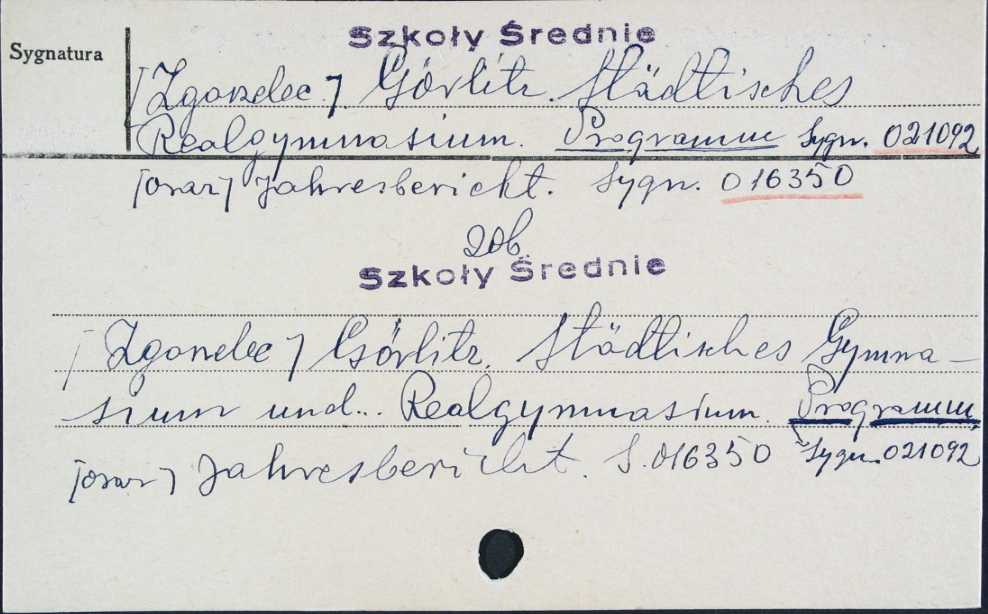 Szkoły Średnie
Sygnatura
[Zgorzelec] Görlitz. Städtisches
Realgymnasium. Programm Sygn. 021092
[oraz] Jahresbericht. Sygn. 016350
zob.
Szkoły Średnie
[Zgorzelec] Görlitz. Städtisches Gymna-
sium und.. Realgymnasium. Programm
[oraz] Jahresbericht. S. 016350 Sygn. 021092